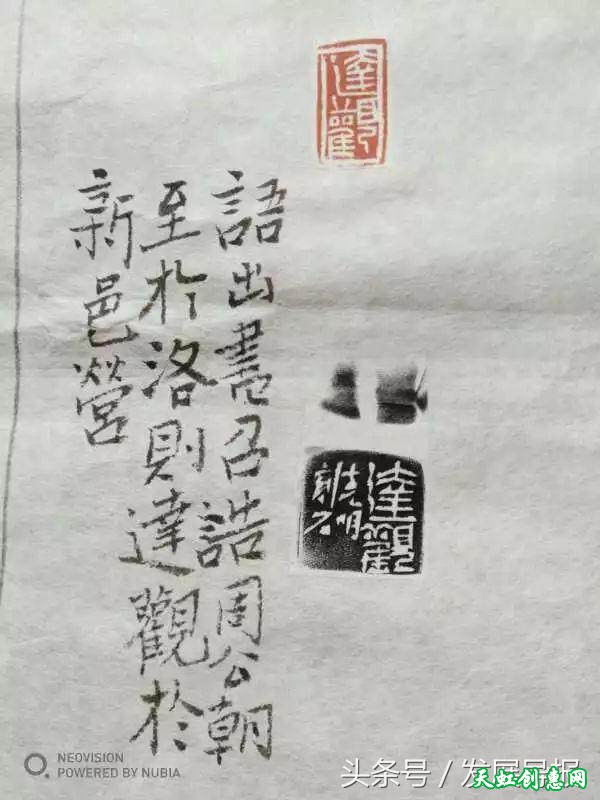 達觀
語出書召誥周公朝
至於洛則達觀於
新邑營
達觀
NEOVISION
POWERED BY NUBIA
头条号 / 发展导报
天虹创惠网